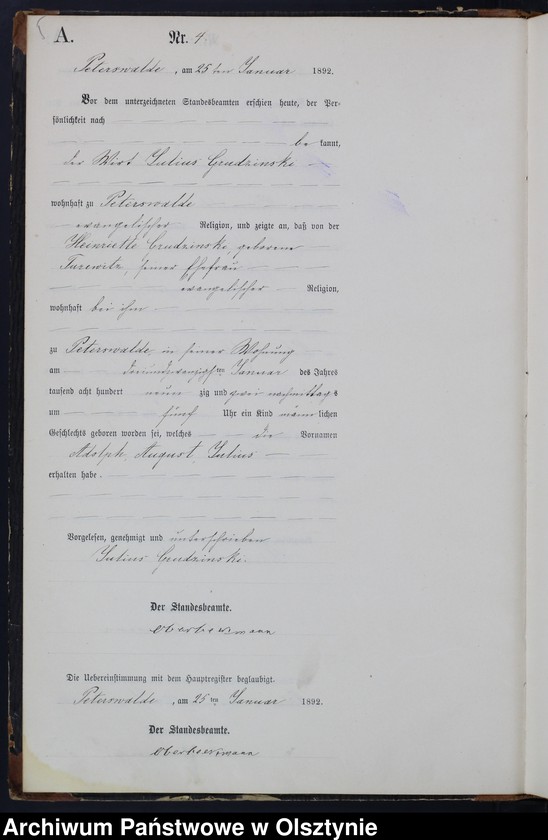 A.
Nr. 4
Peterswalde, am 25ten Januar 1892.
Vor dem unterzeichneten Standesbeamten erschien heute, der Per-
sönlichkeit nach
be kannt,
der Wirt Julius Grudzinski
wohnhaft zu Peterswalde
evangelischer Religion, und zeigte an, daß von der
Henriette Grudzinski geborene
seiner Ehefrau
evangelischer Religion,
wohnhaft bei ihm
zu Peterswalde in seiner Wohnung
am dreiundzwanzigsten Januar des Jahres
tausend acht hundert neun zig und zwei nachmittags
um fünf Uhr ein Kind männ lichen
Geschlechts geboren worden sei, welches die Vornamen
Adolph August Julius
erhalten habe.
Vorgelesen, genehmigt und unterschrieben
Julius Grudzinski.
Der Standesbeamte.
Die Uebereinstimmung mit dem Hauptregister beglaubigt.
Peterswalde, am 25ten Januar 1892.
Der Standesbeamte.
Archiwum Państwowe w Olsztynie